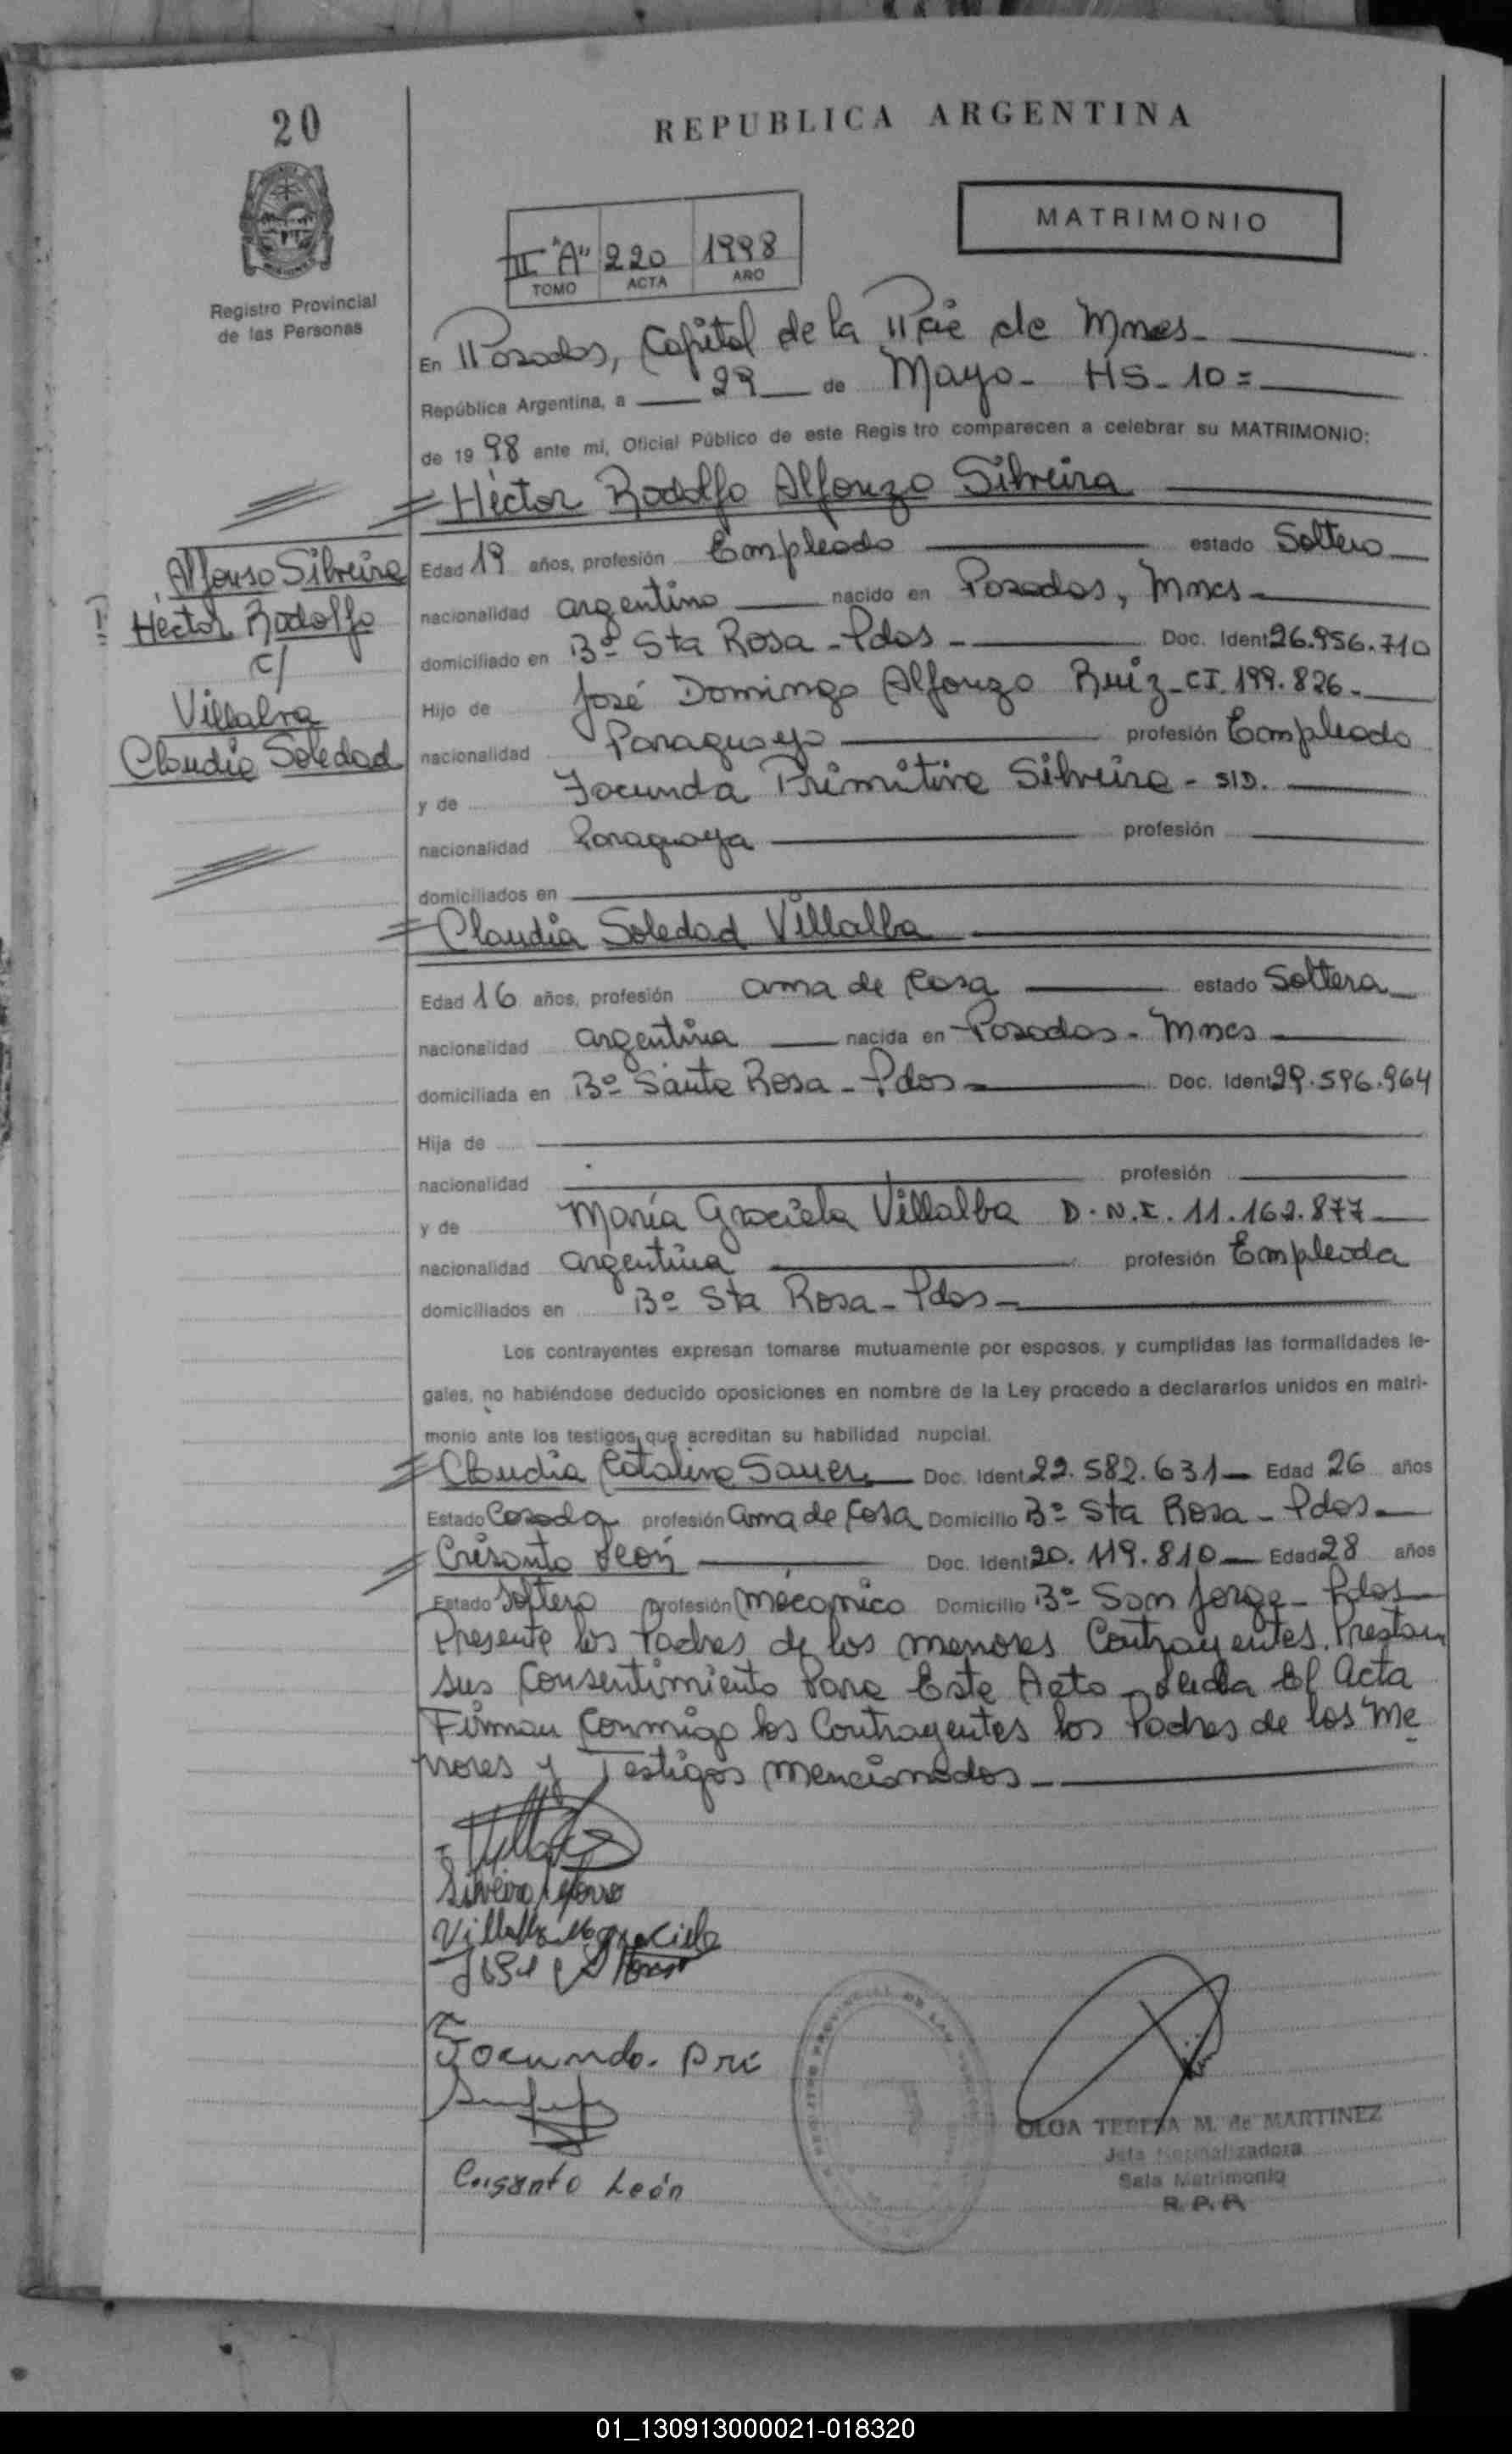 20
REPUBLICA ARGENTINA
MATRIMONIO
II "A" 220 1998
TOMO ACTA AÑO
Registro Provincial
de las Personas
En Posadas, Capital de la Pcie de Mnes-
República Argentina, a 29 de Mayo- HS- 10=
de 1998 ante mi, Oficial Público de este Registro comparecen a celebrar su MATRIMONIO:
Héctor Rodolfo Alfonzo Silveira
Alfonso Silveira
Héctor Rodolfo
c/
Villalva
Claudia Soledad
Edad 19 años, profesión Empleado estado Soltero
nacionalidad argentino nacido en Posadas, Mnes-
domiciliado en Bº Sta Rosa - Pdas - Doc. Ident 26.956.710
Hijo de José Domingo Alfonzo Ruiz - CI. 199.826-
nacionalidad Paraguayo profesión Empleado
y de Jocunda Primitiva Silveira - S/D.
nacionalidad Paraguaya profesión
domiciliados en
Claudia Soledad Villalba
Edad 16 años, profesión ama de Casa estado Soltera
nacionalidad argentina nacida en Posadas - Mnes
domiciliada en Bº Santa Rosa - Pdas - Doc. Ident 29.596.964
Hija de
nacionalidad profesión
y de María Graciela Villalba D.N.I. 11.162.877
nacionalidad argentina profesión Empleada
domiciliados en Bº Sta Rosa - Pdas -
Los contrayentes expresan tomarse mutuamente por esposos, y cumplidas las formalidades le-
gales, no habiéndose deducido oposiciones en nombre de la Ley procedo a declararlos unidos en matri-
monio ante los testigos que acreditan su habilidad nupcial.
Claudia Catalina Sauer Doc. Ident 22.582.631 Edad 26 años
Estado Casada profesión ama de Casa Domicilio Bº Sta Rosa - Pdas -
Crisanto León Doc. Ident 20.119.810 Edad 28 años
Estado Soltero profesión mecanico Domicilio Bº San Jorge - Pdas
Presente los Padres de los menores Contrayentes, Prestan
sus Consentimiento Para Este Acto - Leida El Acta
Firman Conmigo los Contrayentes los Padres de los Me
nores y Testigos mencionados -
Silveira Alfonso
Villalba Ma Graciela
José Alfonso
Jocunda. Pri
Crisanto León
OLGA TERESA M. de MARTINEZ
Jefa Normalizadora
Sala Matrimonio
R. P. P.
01_130913000021-018320